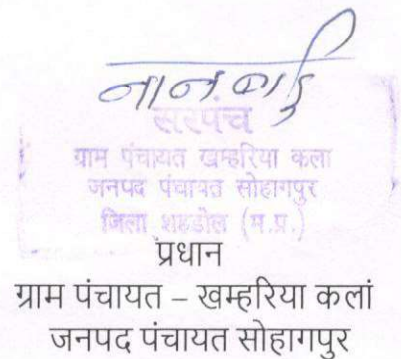 नानबाई
सरपंच
ग्राम पंचायत खम्हरिया कला
जनपद पंचायत सोहागपुर
जिला शहडोल (म.प्र.)
प्रधान
ग्राम पंचायत – खम्हरिया कलां
जनपद पंचायत सोहागपुर